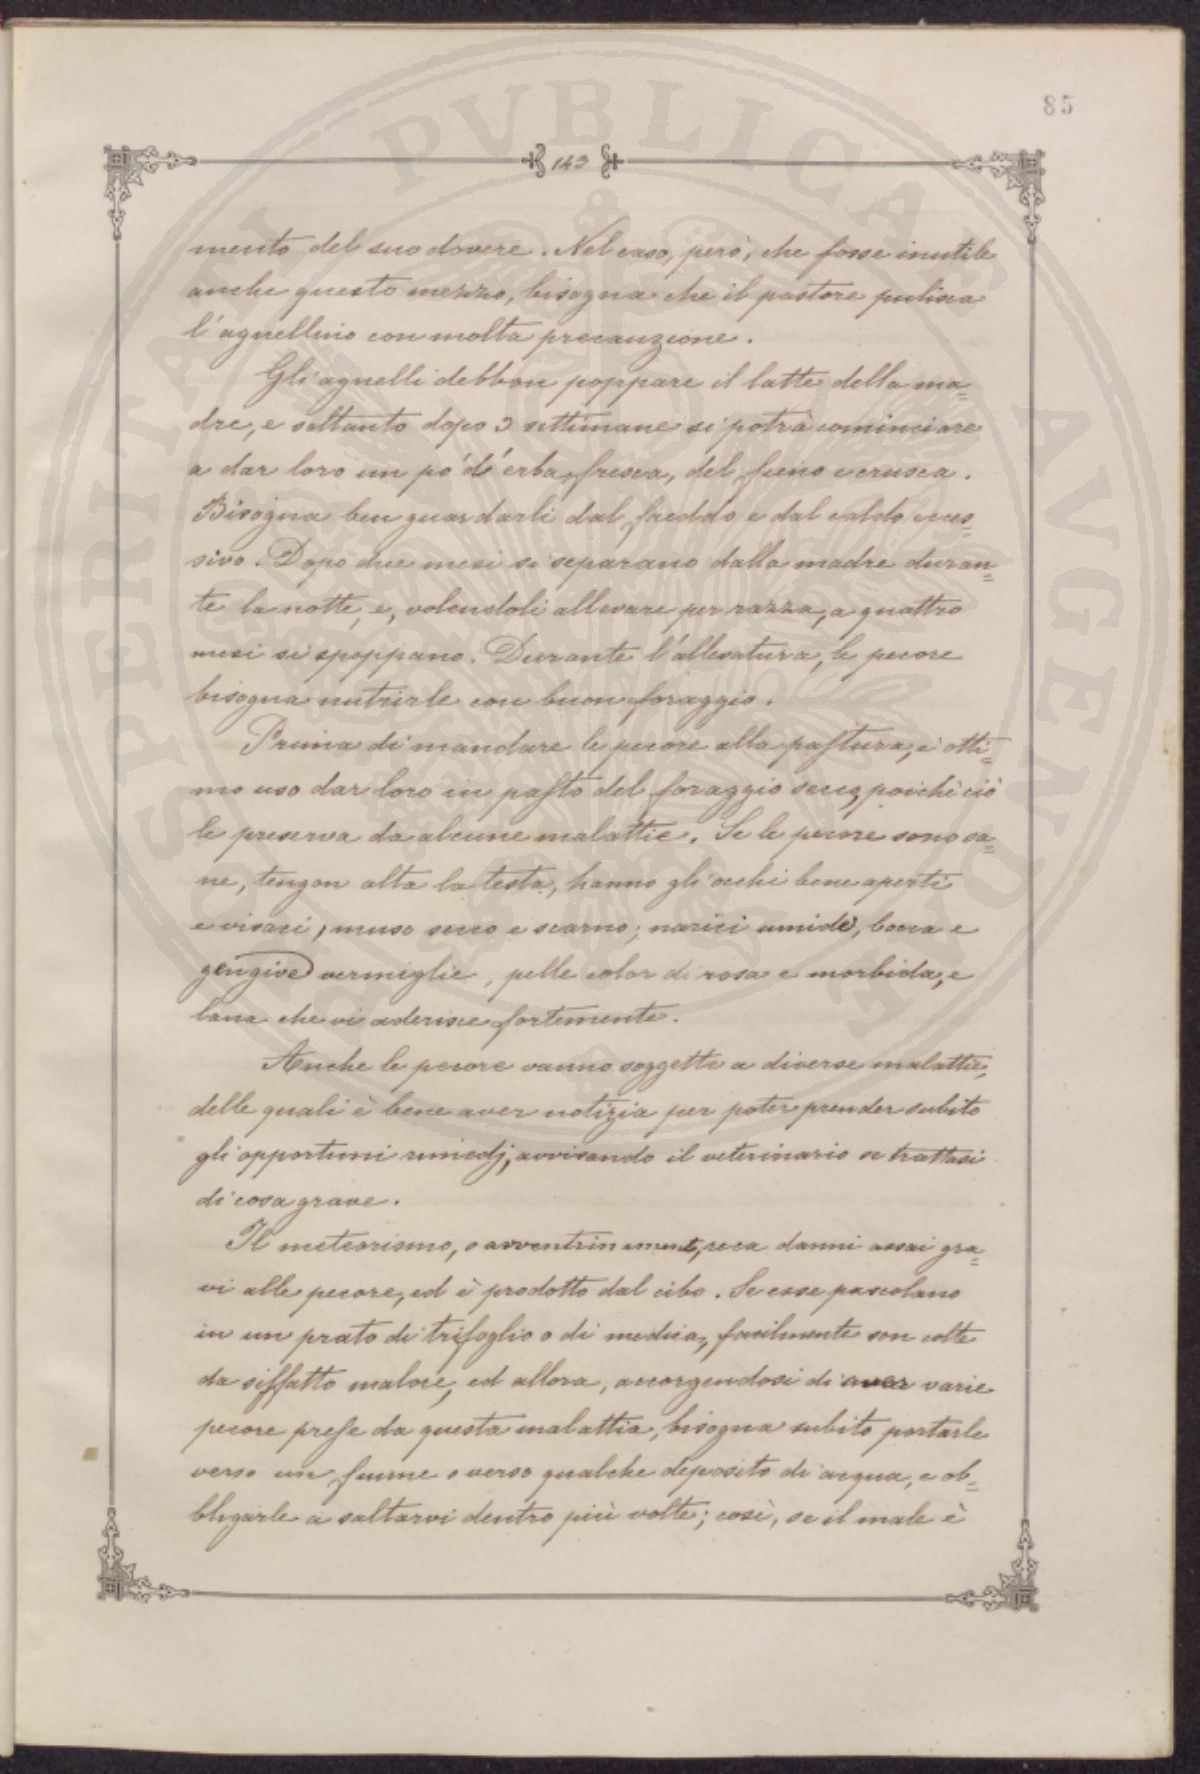 85
143
mento del suo dovere. Nel caso, però, che fosse inutile
anche questo mezzo, bisogna che il pastore pulisca
l'agnellino con molta precauzione.
Gli agnelli debbon poppare il latte della ma=
dre, e soltanto dopo 3 settimane si potrà cominciare
a dar loro un po' d'erba fresca, del fieno e crusca.
Bisogna ben guardarli dal freddo e dal caldo ecces=
sivo. Dopo due mesi si separano dalla madre duran=
te la notte, e, volendoli allevare per razza, a quattro
mesi si spoppano. Durante l'allevatura, le pecore
bisogna nutrirle con buon foraggio.
Prima di mandare le pecore alla pastura, è otti=
mo uso dar loro in pasto del foraggio secco, poichè ciò
le preserva da alcune malattie. Se le pecore sono sa=
ne, tengon alta la testa, hanno gli occhi bene aperti
e vivaci, muso secco e scarno; narici umide, bocca e
gengive vermiglie, pelle color di rosa e morbida, e
lana che vi aderisce fortemente.
Anche le pecore vanno soggette a diverse malattie,
delle quali è bene aver notizia per poter prender subito
gli opportuni rimedj, avvisando il veterinario se trattasi
di cosa grave.
Il meteorismo, o avventrinamento, reca danni assai gra=
vi alle pecore, ed è prodotto dal cibo. Se esse pascolano
in un prato di trifoglio o di medica, facilmente son colte
da siffatto malore, ed allora, accorgendosi di aver varie
pecore prese da questa malattia, bisogna subito portarle
verso un fiume o verso qualche deposito di acqua, e ob=
bligarle a saltarvi dentro più volte; così, se il male è
PUBLICAE AVGENDAE
PERITAN